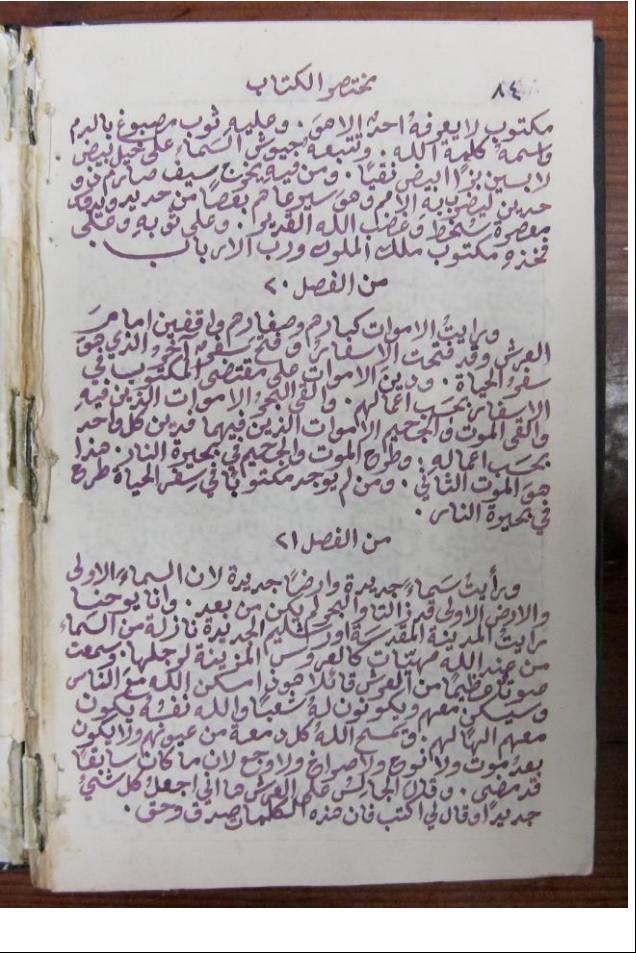 ٨٤ مختصر الكتاب
مكتوب لا يعرفهُ احدٌ الا هوَ. وعليهِ ثوب مصبوغ بالدم
واسمهُ كلمة الله. وتتبعهُ جيوش السماءِ على خيل بيض
لابسين بزًّا ابيض نقيًا. ومن فيهِ يخرج سيف صارم ذو
حدين ليضرب بهِ الامم وهوَ سيرعاهم بعصًا من حديد ويدوس
معصرة سُخط وغضب الله القدير. وعلى ثوبهِ وعلى
فخذهِ مكتوب ملك الملوك ورب الارباب
من الفصل ٢٠
ورايتُ الاموات كبارهم وصغارهم واقفين امام
العرش وقد فتحت الاسفار وفتح سفرٌ آخر والذي هوَ
سفر الحياة. ودينَ الاموات على مقتضى المكتوب في
الاسفار بحسب اعمالهم. والقى البحر الاموات الذين فيهِ
والقى الموت والجحيم الاموات الذين فيهما فدين كل واحدٍ
بحسب اعمالهِ. وطرح الموت والجحيم في بحيرة النار. هذا
هوَ الموت الثاني. ومن لم يوجد مكتوبًا في سِفر الحياة طرح
في بحيرة النار.
من الفصل ٢١
ورأيتُ سماءً جديدة وارضًا جديدة لان السماء الاولى
والارض الاولى قد زالتا والبحر لم يكن من بعد. وانا يوحنا
رايتُ المدينة المقدسة اورشليم الجديدة نازلة من السماء
من عند الله مهيّات كالعروس المزينة لرجلها. وسمعت
صوتًا عظيمًا من العرش قائلًا هوذا مسكن الله مع الناس
وسيكن معهم ويكونون لهُ شعبًا والله نفسهُ يكون
معهم الهًا لهم. ويمسح الله كل دمعة من عيونهم ولا يكون
بعد موت ولا نوح ولا صراخ ولا وجع لان ما كان سابقًا
قد مضى. وقال الجالس على العرش ها اني اجعل كل شيءٍ
جديدًا وقال لي اكتب فان هذه الكلمات صدق وحق.